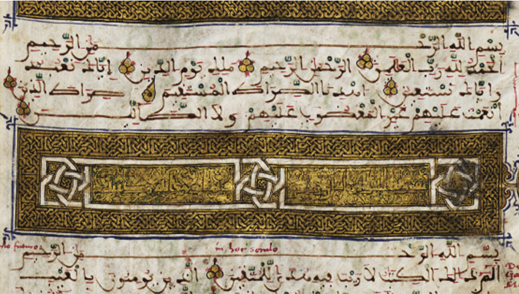 بسم الله الرحمن الرحيم
الحمد لله رب العلمين الرحمن الرحيم ملك يوم الدين اياك نعبد
واياك نستعين اهدنا الصراط المستقيم صراط الذين
انعمت عليهم غير المغضوب عليهم ولا الضالين
in hoc seculo
بسم الله الرحمن الرحيم
الم ذلك الكتب لا ريب فيه هدى للمتقين الذين يومنون بالغيب